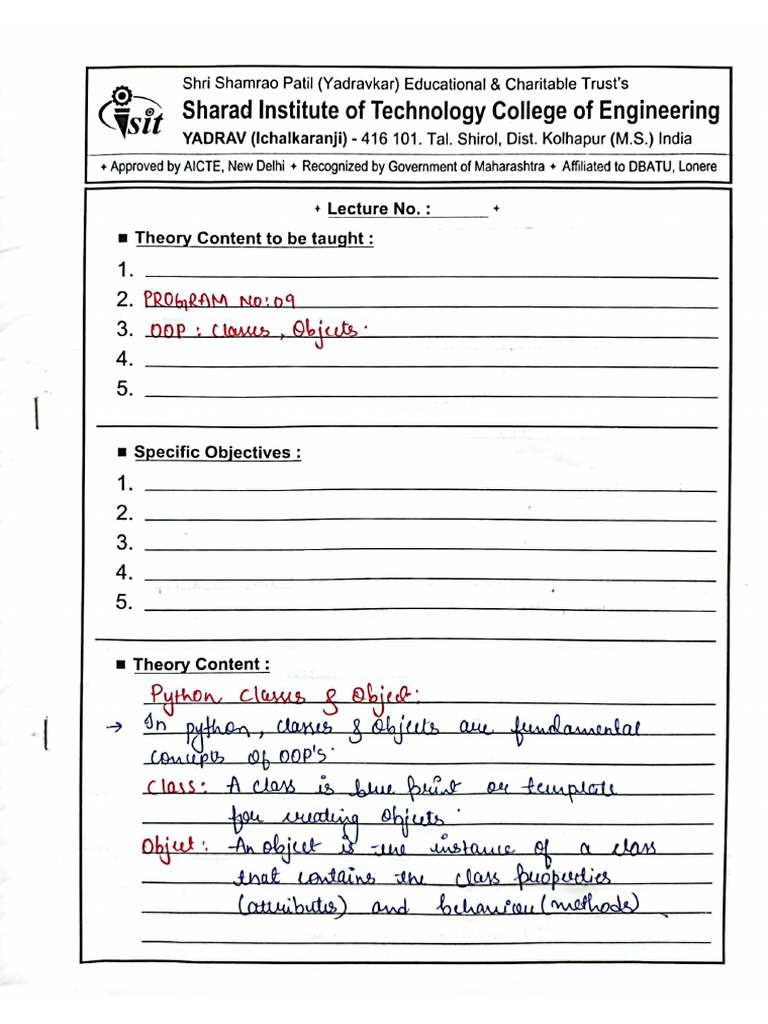 Shri Shamrao Patil (Yadravkar) Educational & Charitable Trust's
Sharad Institute of Technology College of Engineering
YADRAV (Ichalkaranji) - 416 101. Tal. Shirol, Dist. Kolhapur (M.S.) India
sit
+ Approved by AICTE, New Delhi + Recognized by Government of Maharashtra + Affiliated to DBATU, Lonere
+ Lecture No. : ______ +
■ Theory Content to be taught :
1.
2. PROGRAM NO:09
3. OOP : Classes, Objects.
4.
5.
■ Specific Objectives :
1.
2.
3.
4.
5.
■ Theory Content :
Python Classes & Object:
→ In python, classes & Objects are fundamental
concepts of OOP'S.
Class: A class is blue print or template
for creating Objects.
Object: An object is the instance of a class
that contains the class properties
(attributes) and behaviour (methods)